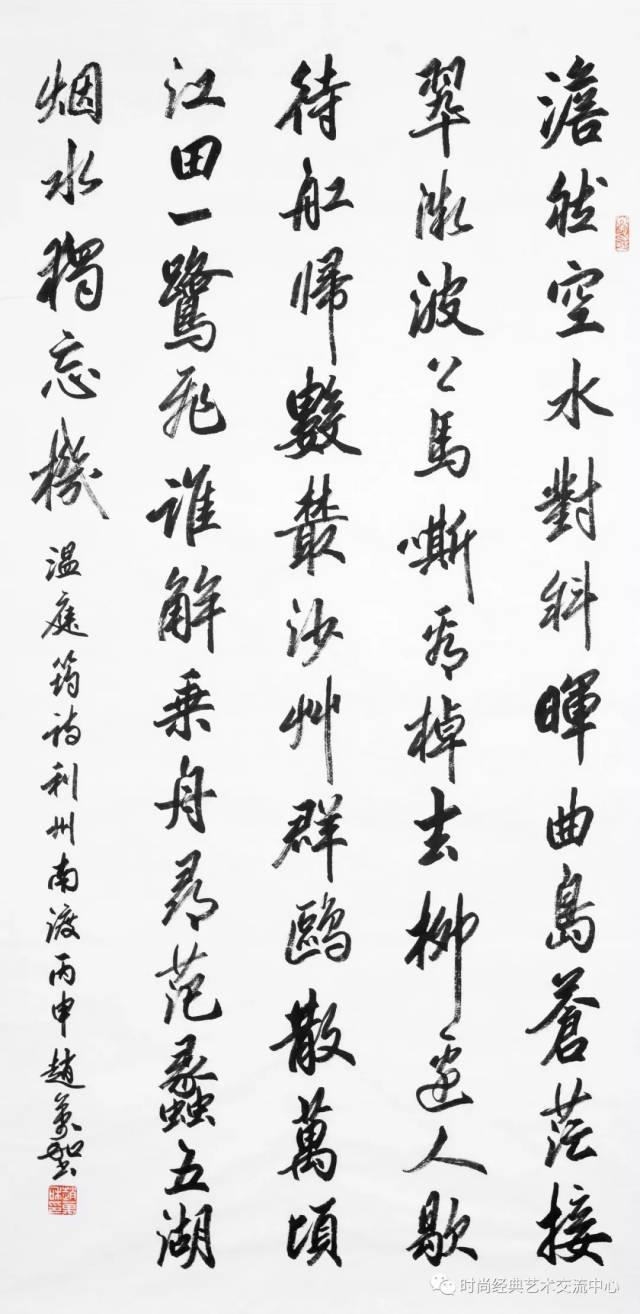 澹然空水對斜暉曲島蒼茫接
翠微波上馬嘶看棹去柳邊人歇
待舡歸數叢沙艸群鷗散萬頃
江田一鷺飛誰解乘舟尋范蠡五湖
烟水獨忘機
温庭筠詩利州南渡丙申趙萬
时尚经典艺术交流中心